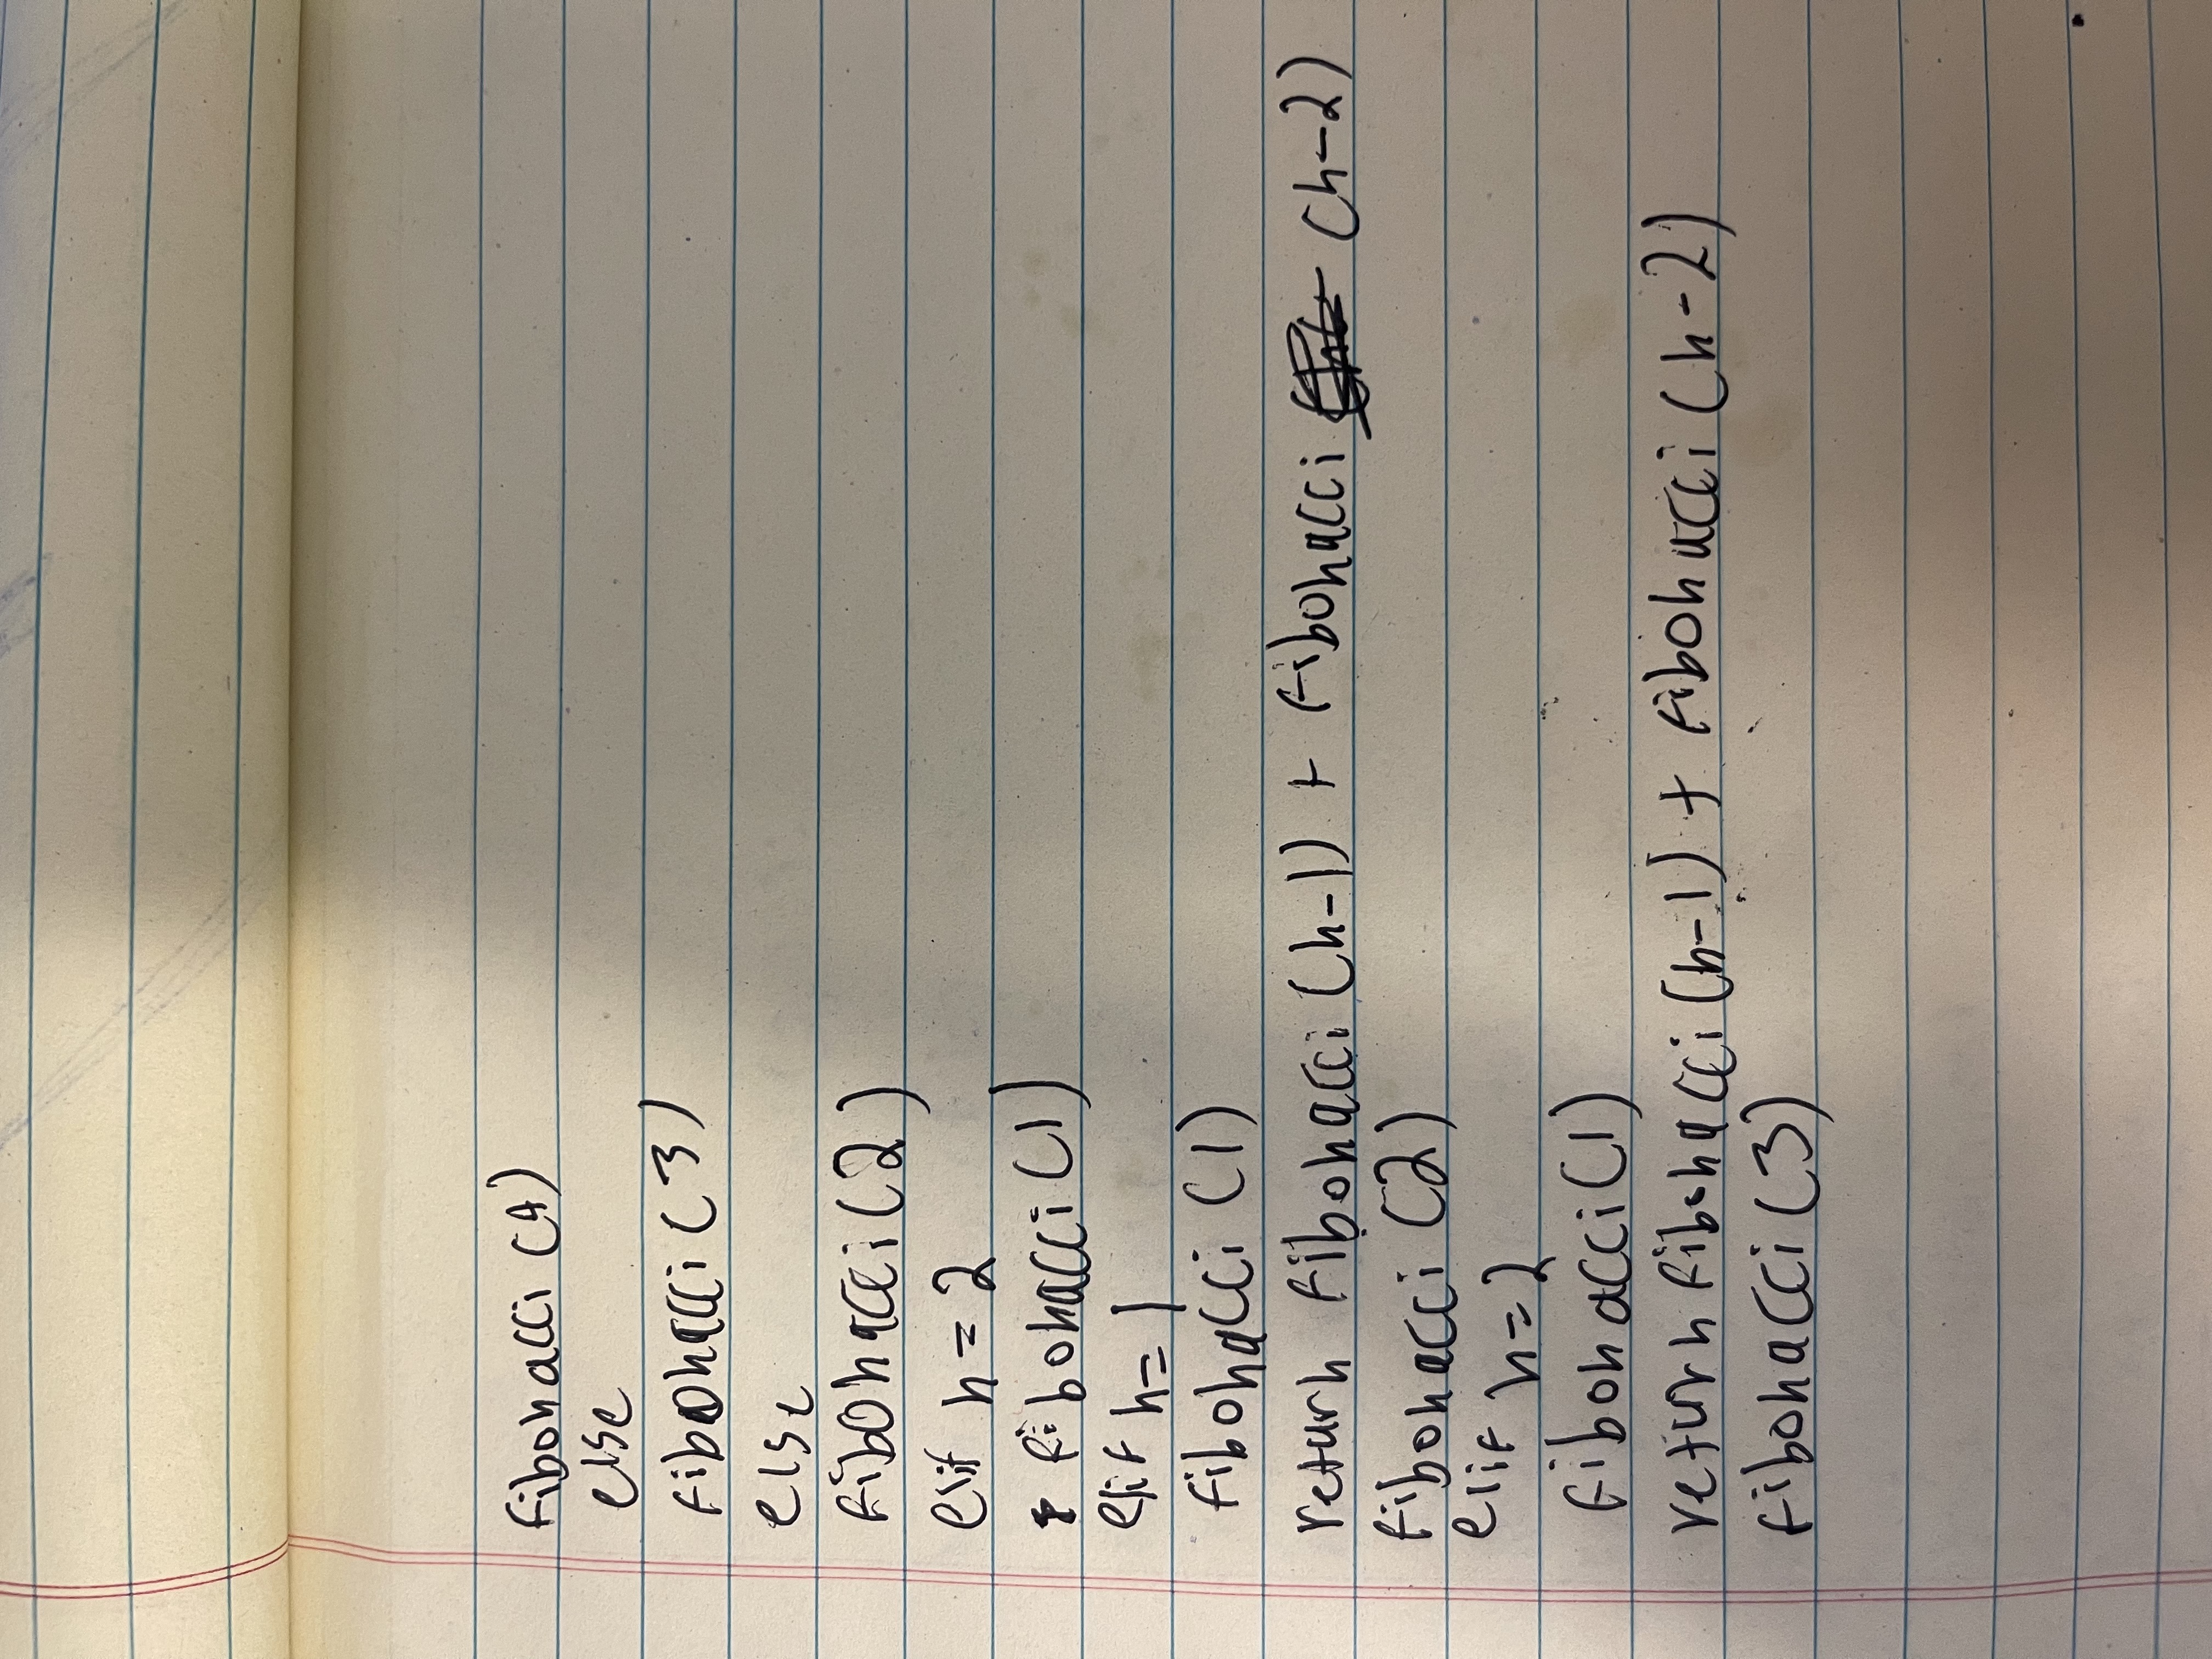 fibonacci (4)
else
fibonacci (3)
else
fibonacci (2)
elif n = 2
fibonacci (1)
elif n = 1
fibonacci (1)
return fibonacci (n-1) + fibonacci (n-2)
fibonacci (2)
elif n = 2
fibonacci (1)
return fibonacci (n-1) + fibonacci (n-2)
fibonacci (3)